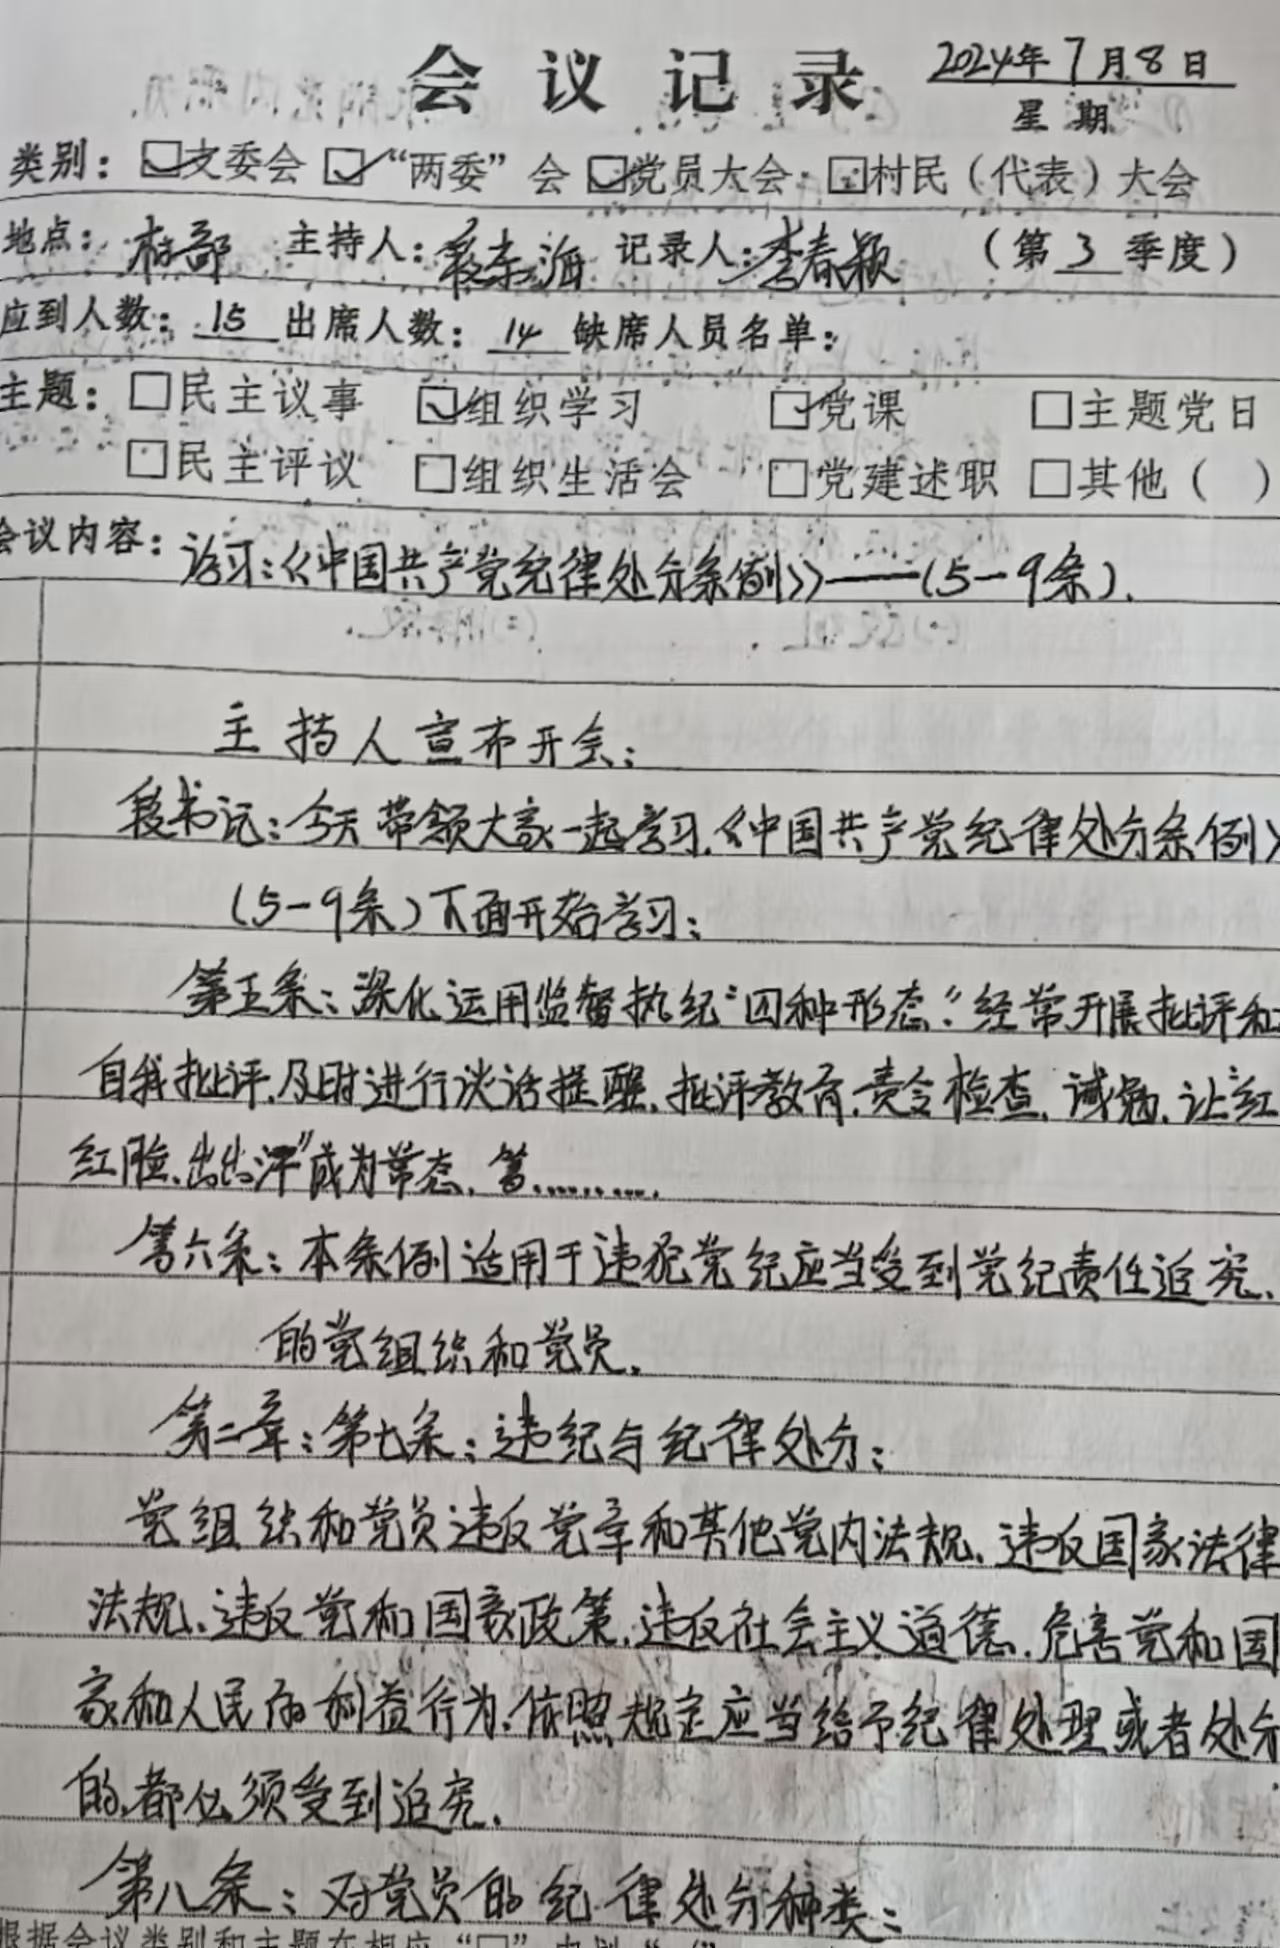 会议记录 2024年7月8日
星期
类别：☑支委会 ☑“两委”会 ☑党员大会 ☑村民（代表）大会
地点：村部 主持人：段东海 记录人：李春颖 （第3季度）
应到人数：15 出席人数：14 缺席人员名单：
主题：□民主议事 ☑组织学习 ☑党课 □主题党日
□民主评议 □组织生活会 □党建述职 □其他（ ）
会议内容：学习：《中国共产党纪律处分条例》——（5-9条）.
主持人宣布开会：
段书记：今天带领大家一起学习.《中国共产党纪律处分条例》
（5-9条）下面开始学习：
第五条：深化运用监督执纪“四种形态”经常开展批评和
自我批评.及时进行谈话提醒.批评教育.责令检查.诫勉.让“红
红脸.出出汗”成为常态.第.........
第六条：本条例适用于违犯党纪应当受到党纪责任追究.
的党组织和党员.
第二章：第七条：违纪与纪律处分：
党组织和党员违反党章和其他党内法规.违反国家法律
法规.违反党和国家政策.违反社会主义道德.危害党和国
家和人民的利益行为.依照规定应当给予纪律处理或者处分
的.都必须受到追究.
第八条：对党员的纪律处分种类：
根据会议类别和主题在相应“□”内划“√”